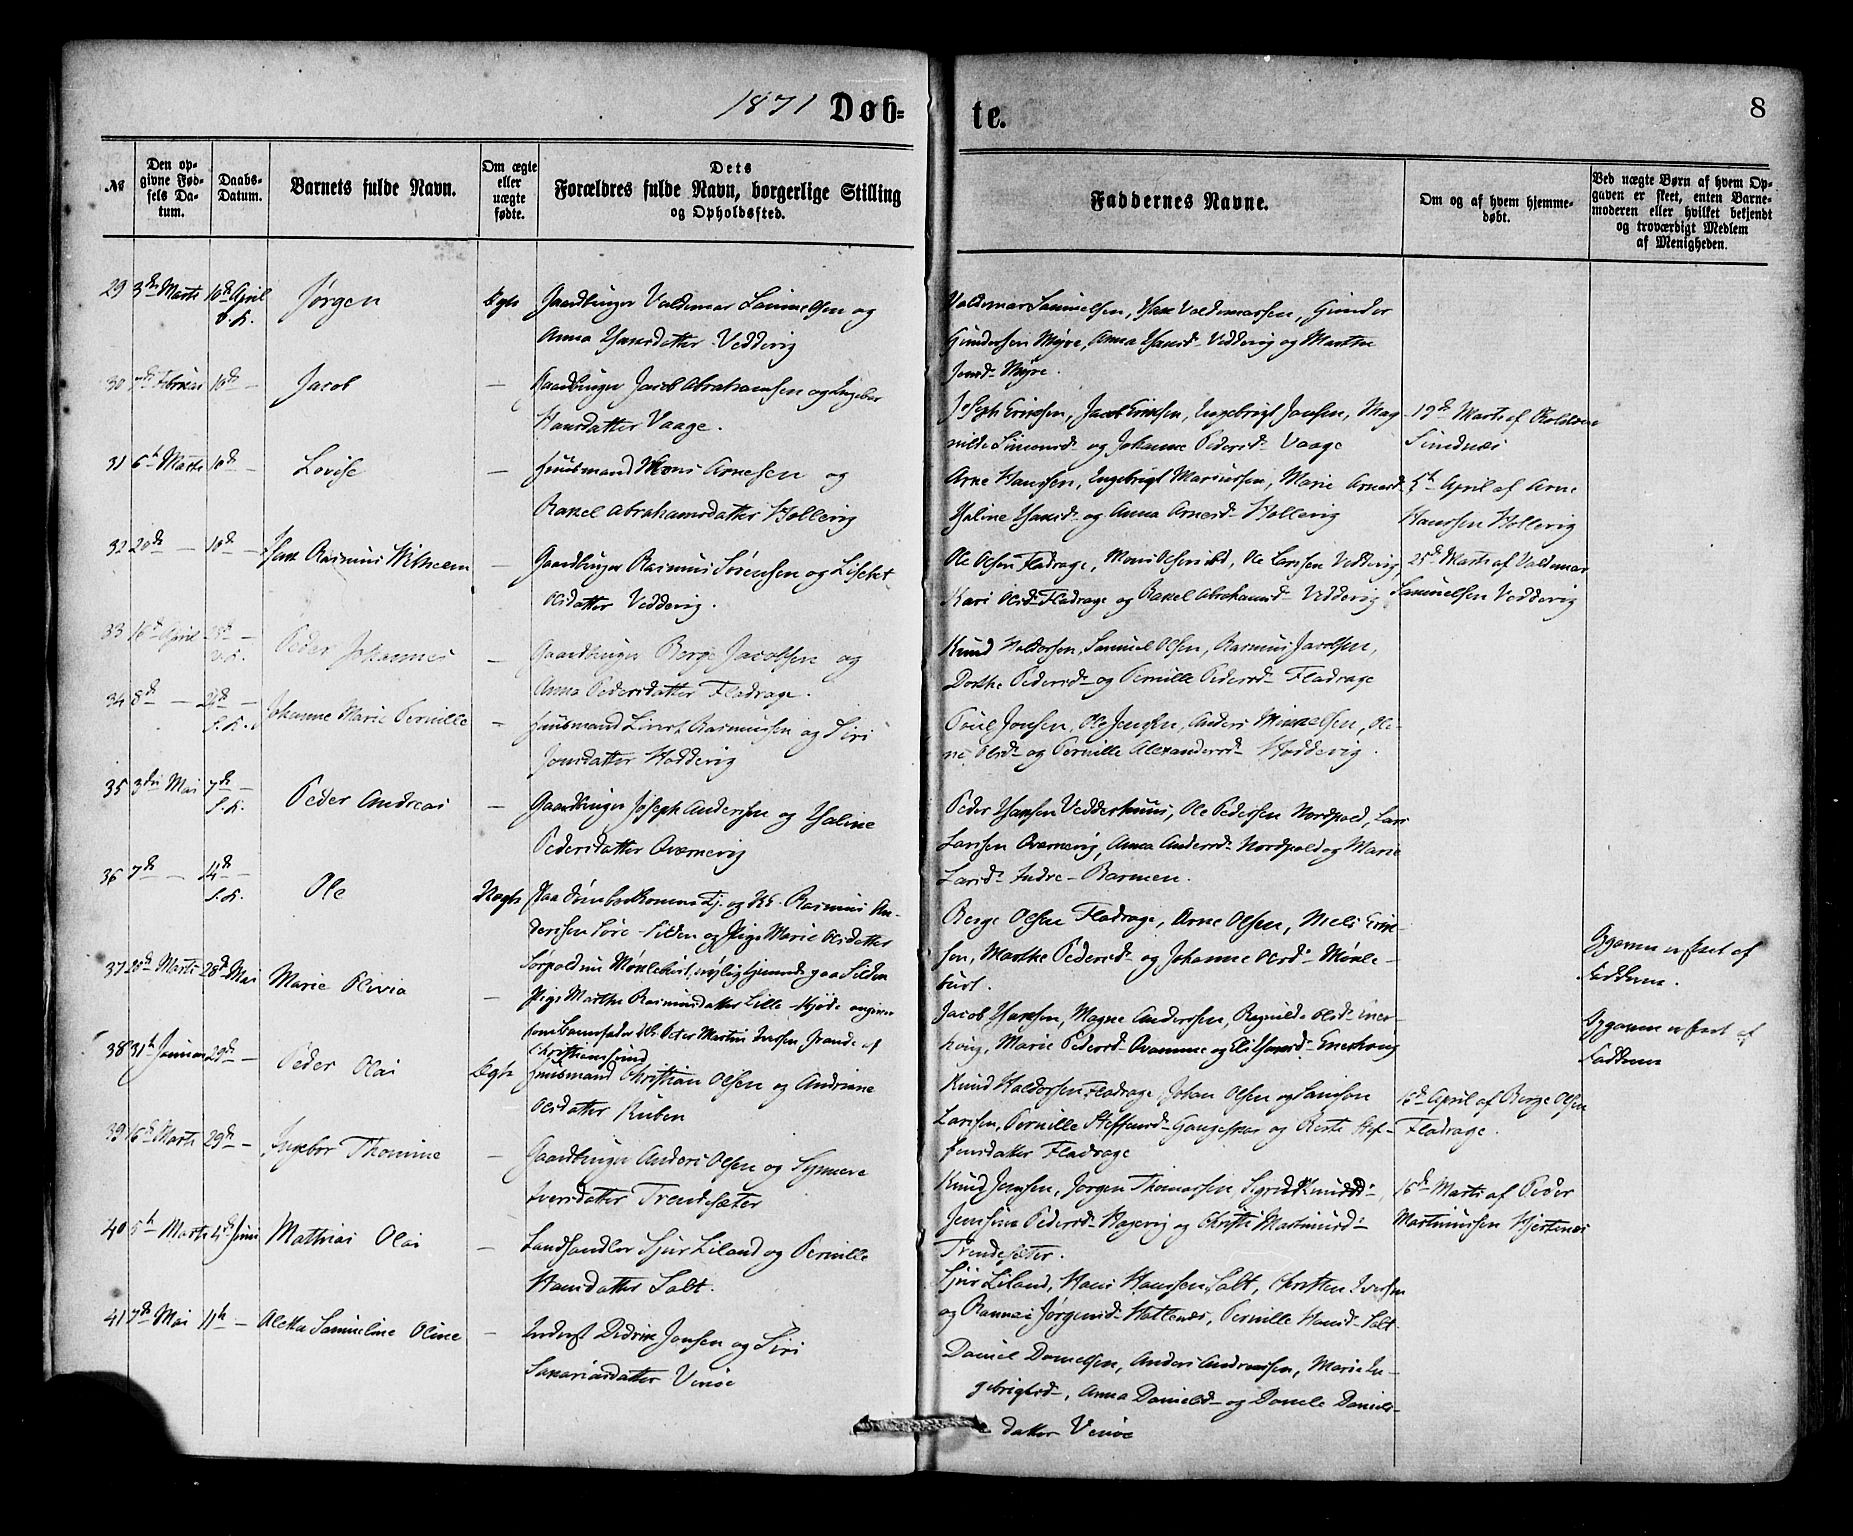 1871 Døb=
te.
8
No
Den op-
givne Fød-
sels Da-
tum.
Daabs-
Datum.
Barnets fulde Navn.
Om ægte
eller
uægte
fødte.
Dets
Forældres fulde Navn, borgerlige Stilling
og Opholdssted.
Faddernes Navne.
Om og af hvem hjemme-
døbt.
Ved uægte Børn af hvem Op-
gaven er skeet, enten Barne-
moderen eller hvilket bekjendt
og troværdigt Medlem
af Menigheden.
29 3die Marts 10de April Jørgen Ægte Gaardbruger Valdemar Samuelsen og
Anna Hansdatter Vedderig
Valdemar Samuelsen, Valdemarsen, Gunder
Gundersen Myre, Anna Hansd. Vedderig og Marthe
Jensd. Myre.
30 7de Februar 10de — Jacob — Gaardbruger Jacob Abrahamsen og Ingebor
Hansdatter Vaage.
Joseph Eriksen, Jacob Eriksen, Ingebrigt Jansen, Mag-
nilde Simonsd. og Johanne Pedersd. Vaage
19de Marts af
31 6te Marts 10de — Lovise — Huusmand Mons Arnesen og
Rakel Abrahamsdatter Hollevig
Arne Hanssen, Ingebrigt Mariussen, Marie Arnesd.
Haline Hansd. og Anna Arnesd. Hollevig
5te April af Arne
Hanssen Hollevig
32 20de — 10de — Rasmus Wilhelm — Gaardbruger Rasmus Sørensen og Lisebet
Olsdatter Vedderig.
Ole Olsen Fladrage, Mons Olsen ibd, Ole Larssen Vedderig,
Kari Olsd. Fladrage og Rakel Abrahamsd. Vedderig
25de Marts af Valdemar
Samuelsen Vedderig
33 16de April Peder Johannes — Gaardbruger Berge Jacobsen og
Anna Pedersdatter Fladrage.
Knud Haldorsen, Samuel Olsen, Rasmus Jacobsen,
Dorthe Pedersd. og Pernille Pedersd. Fladrage
34 8de — Johanne Marie Pernille — Huusmand Sivert Rasmussen og Siri
Jonsdatter Hoddevig
Poul Jonsen, Ole Jensen, Anders Mikkelsen, Ole-
ne Olsd. og Pernille Alexandersd. Hoddevig.
35 3die Mai 7de — Peder Andreas — Gaardbruger Joseph Anderssen og Haline
Pedersdatter Qvernevig
Peder Hansen Vedderhuus, Ole Pedersen Nordpold, Lars
Larssen Qvernevig, Anna Andersd. Nordpold og Marie
Larsd. Indre-Barmen.
36 7de — 14de — Ole Uægte Rasmus An-
derssen Sørre-Silden og Pige Marie Olsdatter
Sørpold nu Mønlebust, nylig tjenende paa Silden
Berge Olsen Fladrage, Arne Olsen, Nels Erik-
sen, Marthe Pedersd. og Johanne Olsd. Mønle-
bust.
Opgaven er skeet af
Fadderne.
37 20de Marts 28de Mai Marie Olivia — Pige Marthe Rasmusdatter Lille-Hjøde angiver
som Barnefader Peter Martin Iversen Grande af
Christianssund
Jacob Hansen, Magne Anderssen, Ragnilde Olsd. Ener-
houg, Marie Pedersd. Qvamme og Eli Hansd. Enerhoug
Opgaven er skeet af
Fadderne
38 31te Januar 29de — Peder Olai Ægte Huusmand Christian Olsen og Andriane
Olsdatter Ruben
Knud Haldorsen Fladrage Johan Olsen og Samson
Larssen, Pernille Steffensd. Gangeskar og Berte Stef-
fensdatter Fladrage
16de April af Berge Olsen
Fladrage.
39 16de Marts 29de — Ingebor Thomine — Gaardbruger Anders Olsen og Synneve
Iversdatter Trendesæter
Knud Jensen, Jørgen Thomassen Sigrid Knudsd.
Jensine Pedersd. Hagevig og Christi Martinusd.
Trendesætter.
16de Marts af Peder
Martinussen Hjertenæs
40 5te Marts Juni Mathias Olai — Landhandler Sjur Liland og Pernille
Hansdatter Salt.
Sjur Liland, Hans Hanssen Salt, Christen Iversen
og Rannei Jørgensd. Hatlenæs, Pernille Hansd. Salt.
41 7de Mai 11te — Aletta Samueline Oline — Inderst Didrik Jonsen og Siri
Sakariasdatter Venøe
Daniel Danielsen, Anders Andreassen, Marie In-
gebrigtsd., Anna Danielsd. og Daniele Daniels-
datter Venøe